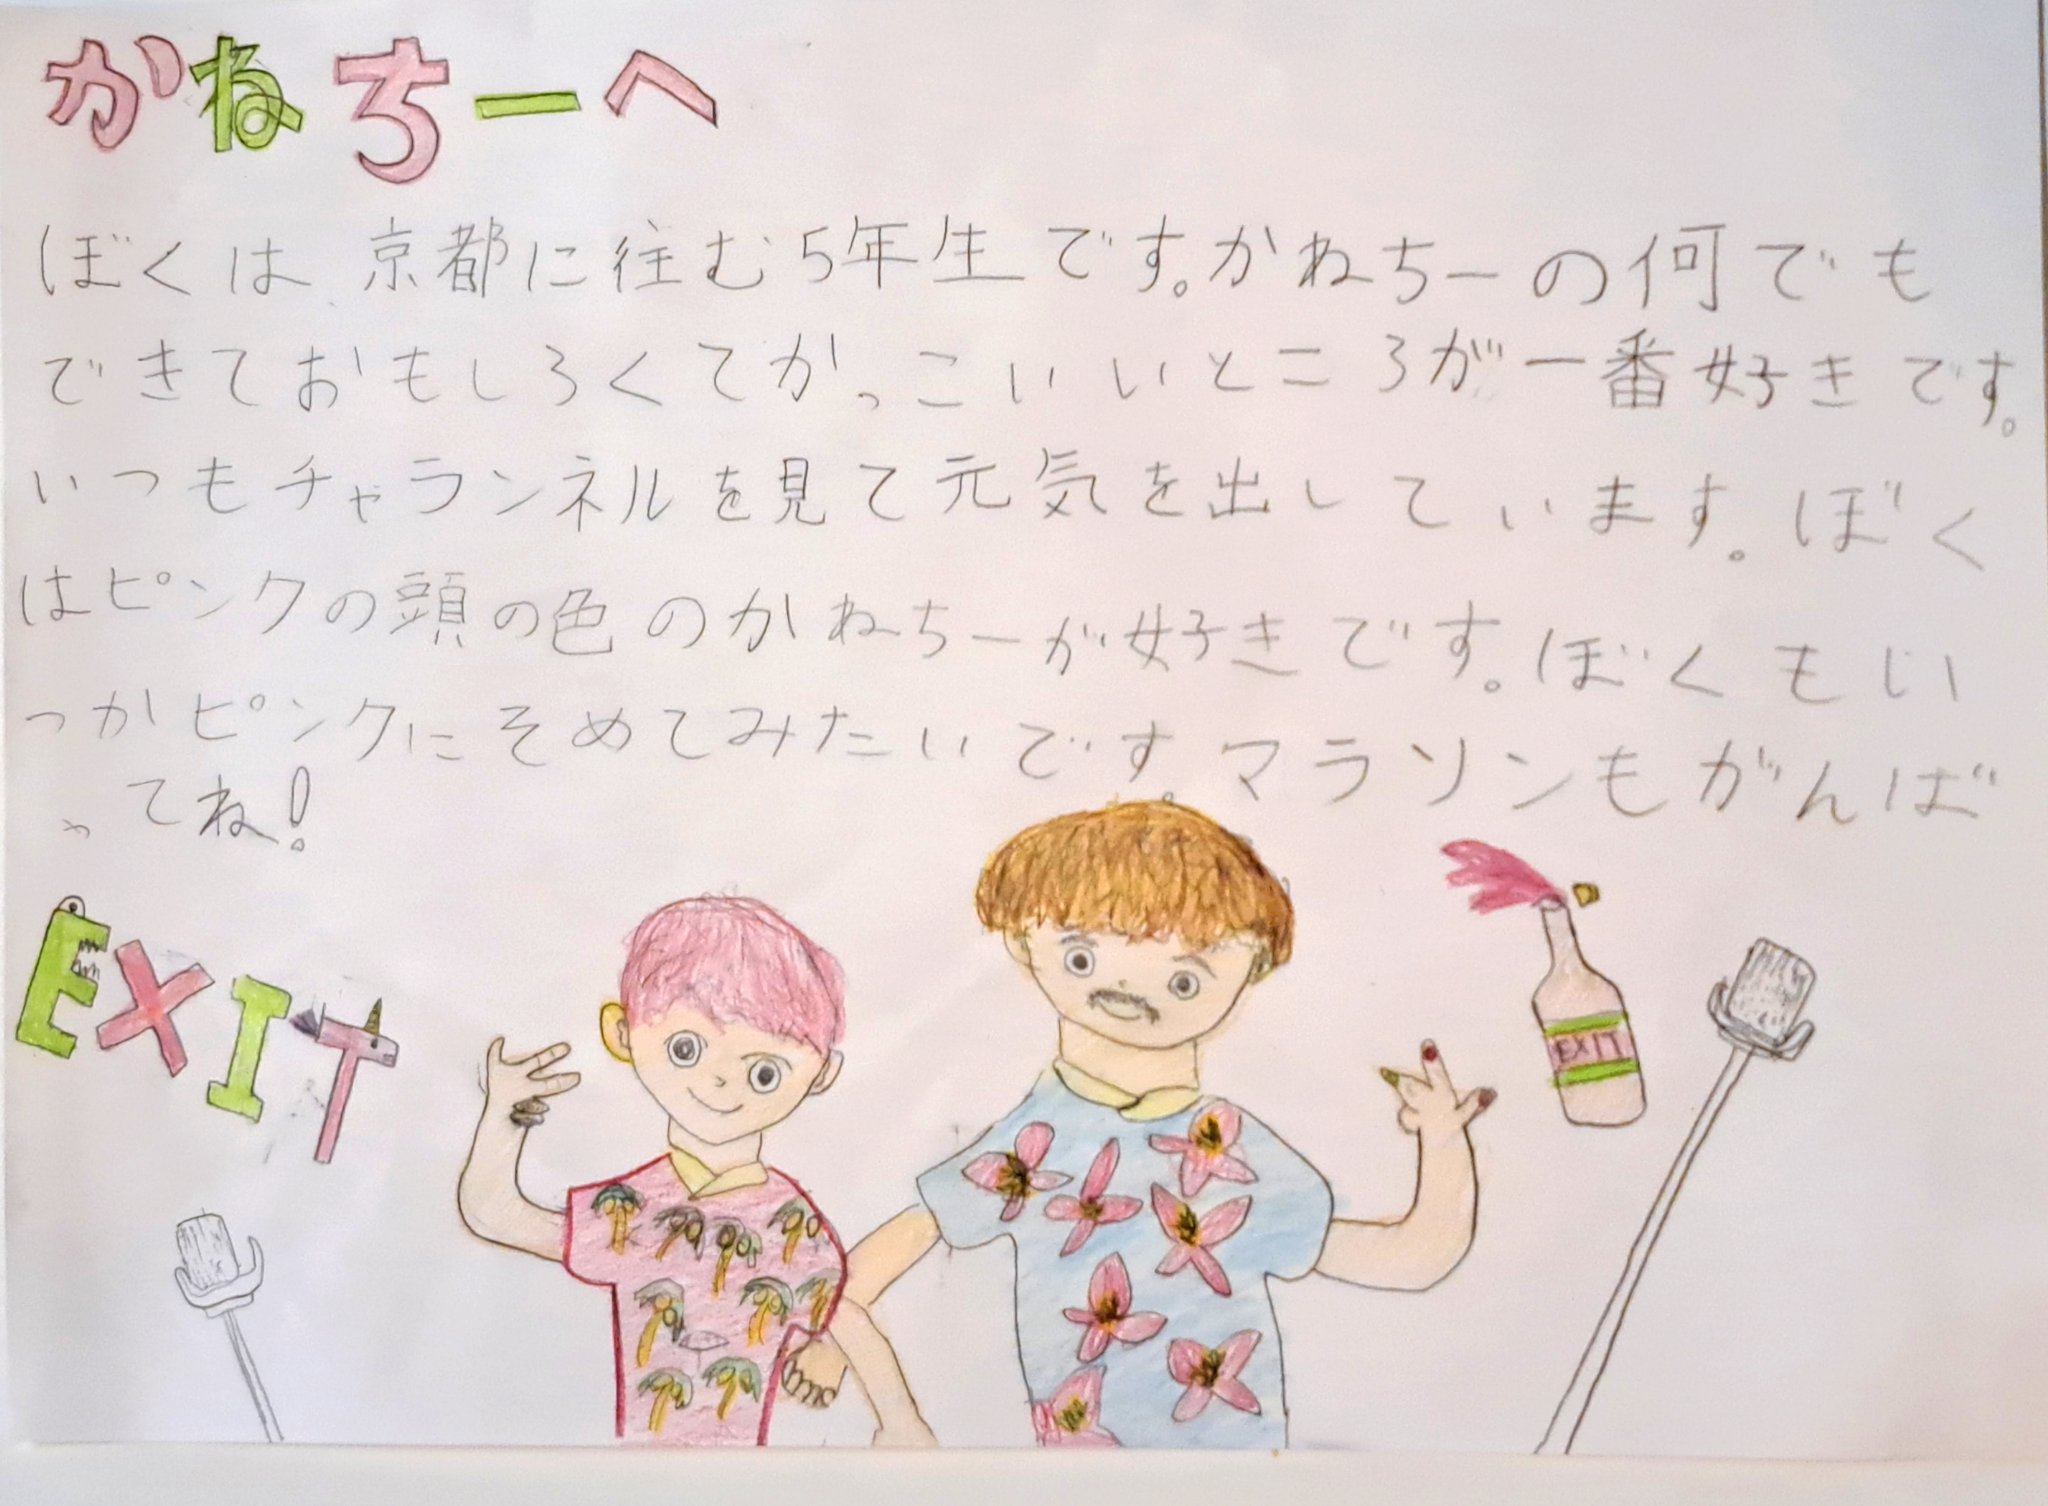 かねちーへ
ぼくは、京都に往む5年生です。かねちーの何でも
できておもしろくてかっこいいところが一番好きです。
いつもチャランネルを見て元気を出しています。ぼく
はピンクの頭の色のかねちーが好きです。ぼくもい
つかピンクにそめてみたいです。マラソンもがんば
ってね!
EXIT
EXIT